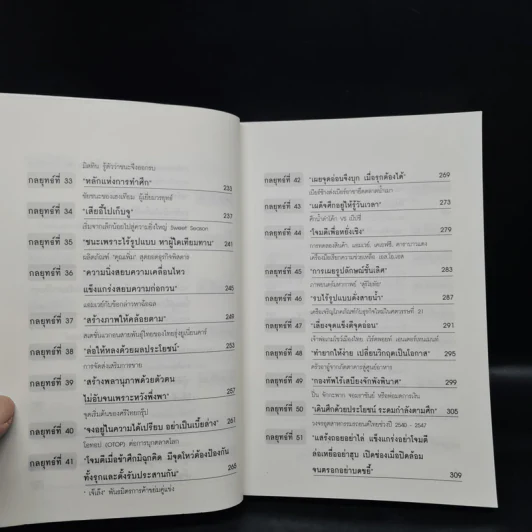 มิสทีน รู้ตัวว่าชนะจึงออกรบ
กลยุทธ์ที่ 33 "หลักแห่งการทำศึก" 233
ชัยชนะของแสงเทียน ผู้เยี่ยมวรยุทธ์
กลยุทธ์ที่ 34 "เสียอี้ไปเก็บจู" 237
เริ่มจากเล็กน้อยไปสู่ความยิ่งใหญ่ Sweet Season
กลยุทธ์ที่ 35 "ชนะเพราะไร้รูปแบบ หาผู้ใดเทียมทาน" 241
ผลิตภัณฑ์ "คุณหิ่ม" สุดยอดธุรกิจติดตาข
กลยุทธ์ที่ 36 "ความนิ่งสยบความเคลื่อนไหว
แข็งแกร่งสยบความก่อกวน" 245
แสนเวย์กับข้อกล่าวหาฉ้อฉล
กลยุทธ์ที่ 37 "สร้างภาพให้คล้อยตาม" 249
สเตชั่นแวกอนสายพันธุ์ไทยของไทยรุ่งยูเนี่ยนคาร์
กลยุทธ์ที่ 38 "ล่อให้หลงด้วยผลประโยชน์" 253
การจัดส่งเสริมการขาย
กลยุทธ์ที่ 39 "สร้างพลานุภาพด้วยตัวตน
ไม่อับจนเพราะหวังพึ่งพา" 257
จุดเริ่มต้นของศรีไทยกรุ๊ป
กลยุทธ์ที่ 40 "จงอยู่ในความได้เปรียบ อย่าเป็นเบี้ยล่าง" 261
โอทอป (OTOP) ต่อการบุกตลาดโลก
กลยุทธ์ที่ 41 "โจมตีเมื่อข้าศึกมีฉุกคิด มีจุดไหวต้องป้องกัน
ทั้งรุกและตั้งรับประสานกัน" 265
"เจ้เล้ง" พันธมิตรการค้าข่มคู่แข่ง
กลยุทธ์ที่ 42 "เผยจุดอ่อนจึงบุก เมื่อรุกต้องได้" 269
เบียร์ช้างส่งเบียร์อาชายึดตลาดน้ำเมา
กลยุทธ์ที่ 43 "เผด็จศึกอยู่ให้รู้วันเวลา" 273
ศึกน้ำดำโค้ก VS เป๊ปซี่
กลยุทธ์ที่ 44 "โจมตีเพื่อหยั่งเชิง"
การทดลองสินค้า แอมเวย์, เคเอฟซี, ดาราบานแดง
เครื่องมือเรียกความช่วยเหลือ เอส.โอ.เอส
กลยุทธ์ที่ 45 "การเผยรูปลักษณ์ชั้นเลิศ" 283
ภาพยนตร์มหากาพย์ "สุริโยทัย"
กลยุทธ์ที่ 46 "รบไร้รูปแบบดังสายน้ำ" 287
เตรียมชิญผลิตภัณฑ์กับธุรกิจไทยในศตวรรษที่ 21
กลยุทธ์ที่ 47 "เลี่ยงจุดแข็งตีจุดอ่อน" 291
เจ้าพ่อเกมโชว์เมืองไทย เวิร์คพอยท์ เอนเตอร์เทนเมนท์
กลยุทธ์ที่ 48 "ทำยากให้ง่าย เปลี่ยนวิกฤตเป็นโอกาส" 295
ครัวอาผู้จากภัตตาคารสู่ศูนย์อาหาร
กลยุทธ์ที่ 49 "กองทัพไร้เสบียงจักพังพินาศ" 299
ปิ่น จักกะพาก จอมราชันย์ หรือพ่อมดการเงิน
กลยุทธ์ที่ 50 "เดินศึกด้วยประโยชน์ ระดมกำลังตามศึก" 305
วงจรอุตสาหกรรมรถยนต์ไทยช่วงปี 2540 - 2547
กลยุทธ์ที่ 51 "แสร้งถอยอย่าไล่ แข็งแกร่งอย่าโจมตี
ล่อเหยื่ออย่าฮุบ เปิดช่องเมื่อปิดล้อม
จนตรอกอย่าบดขยี้" 309